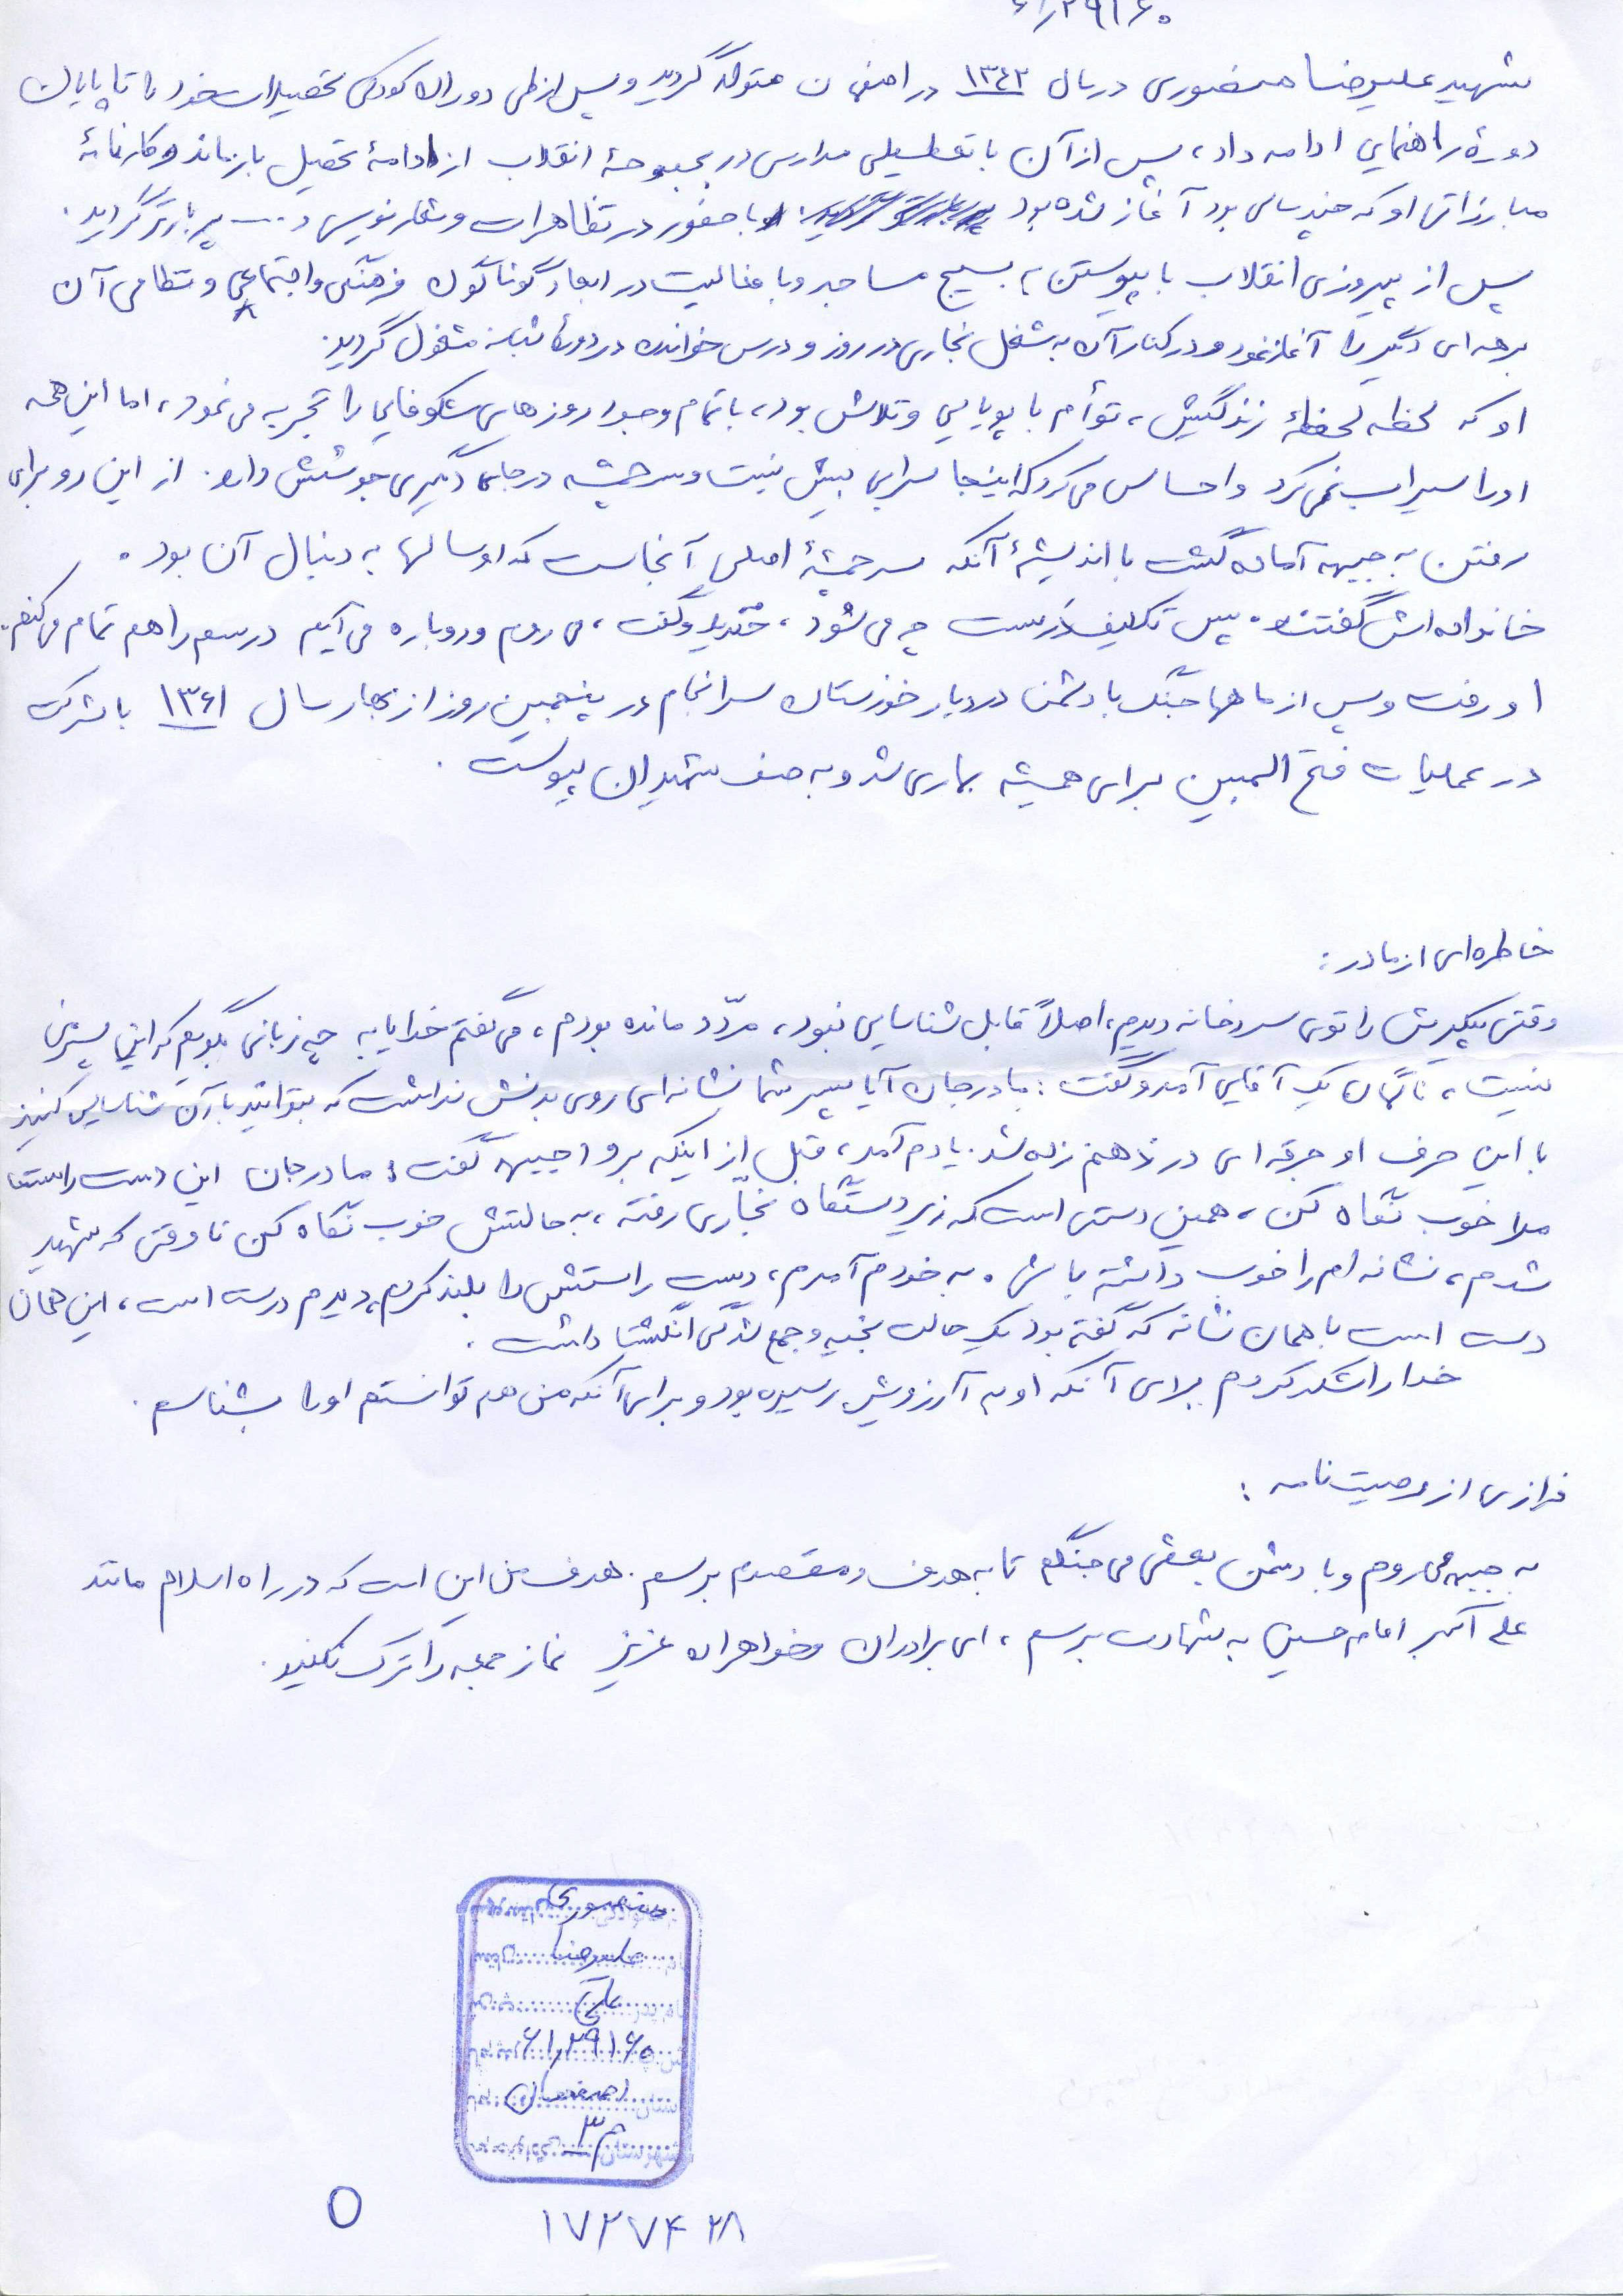 شهید علیرضا منصوری در سال ۱۳۴۳ در اصفهان متولد گردید و پس از طی دوران کودکی تحصیلات خود را تا پایان
دورهٔ راهنمایی ادامه داد، پس از آن با تعطیلی مدارس در بحبوحهٔ انقلاب از ادامهٔ تحصیل بازماند و کارنامهٔ
مبارزاتی او که چند سالی بود آغاز شده بود با حضور در تظاهرات و شعارنویسی و .... پربارتر گردید.
پس از پیروزی انقلاب با پیوستن به بسیج مساجد و با فعالیت در ابعاد گوناگون فرهنگی و اجتماعی و نظامی آن
برهه‌ای دیگر را آغاز نمود و در کنار آن به شغل نجاری در روز و درس خواندن در دورهٔ شبانه مشغول گردید.
او که لحظه لحظهٔ زندگیش، توأم با پویایی و تلاش بود، با تمام وجود روزهای شکوفایی را تجربه می‌نمود، اما این همه
او را سیراب نمی‌کرد و احساس می‌کرد که اینجا سرابی بیش نیست و سرچشمه در جای دیگری جوشش دارد. از این رو برای
رفتن به جبهه آماده گشت با اندیشهٔ آنکه سرچشمهٔ اصلی آنجاست که او سالها به دنبال آن بود.
خانواده‌اش گفتند. پس تکلیف درست چه می‌شود، خندید و گفت، می‌روم و دوباره می‌آیم درسم را هم تمام می‌کنم.
او رفت و پس از ماهها جنگ با دشمن در دیار خوزستان سرانجام در پنجمین روز از بهار سال ۱۳۶۱ با شرکت
در عملیات فتح المبین برای همیشه جاری شد و به صف شهیدان پیوست.
خاطره‌ای از مادر:
وقتی پیکرش را توی سردخانه دیدم، اصلاً قابل شناسایی نبود، مردّد مانده بودم، می‌گفتم خدایا به چه زبانی بگویم که این پسر من
نیست، ناگهان یک آقایی آمد و گفت: مادر جان آیا پسر شما نشانه‌ای روی بدنش نداشت که بتوانید با آن شناسایی کنید
با این حرف او جرقه‌ای در ذهنم زده شد. یادم آمد، قبل از اینکه برود جبهه گفت: مادر جان این دست راست
مرا خوب نگاه کن، همین دستی است که زیر دستگاه نجّاری رفته، به حالتش خوب نگاه کن تا وقتی که شهید
شدم، نشانه‌ام را خوب داشته باشی. به خودم آمدم، دست راستش را بلند کردم، دیدم درست است، این همان
دست است با همان نشانه که گفته بود یک حالت بخیه و جمع شدگی انگشتا داشت.
خدا را شکر کردم برای آنکه او به آرزویش رسیده بود و برای آنکه من هم توانستم او را بشناسم.
فرازی از وصیت‌نامه:
به جبهه می‌روم و با دشمن بعثی می‌جنگم تا به هدف و مقصدم برسم. هدف من این است که در راه اسلام مانند
علی اکبر امام حسین به شهادت برسم، ای برادران و خواهران عزیز نماز جمعه را ترک نکنید.
منصوری
علیرضا
۶۱٫۲۹۱۶۰
اصفهان
۱۷۲۷۴۲۸